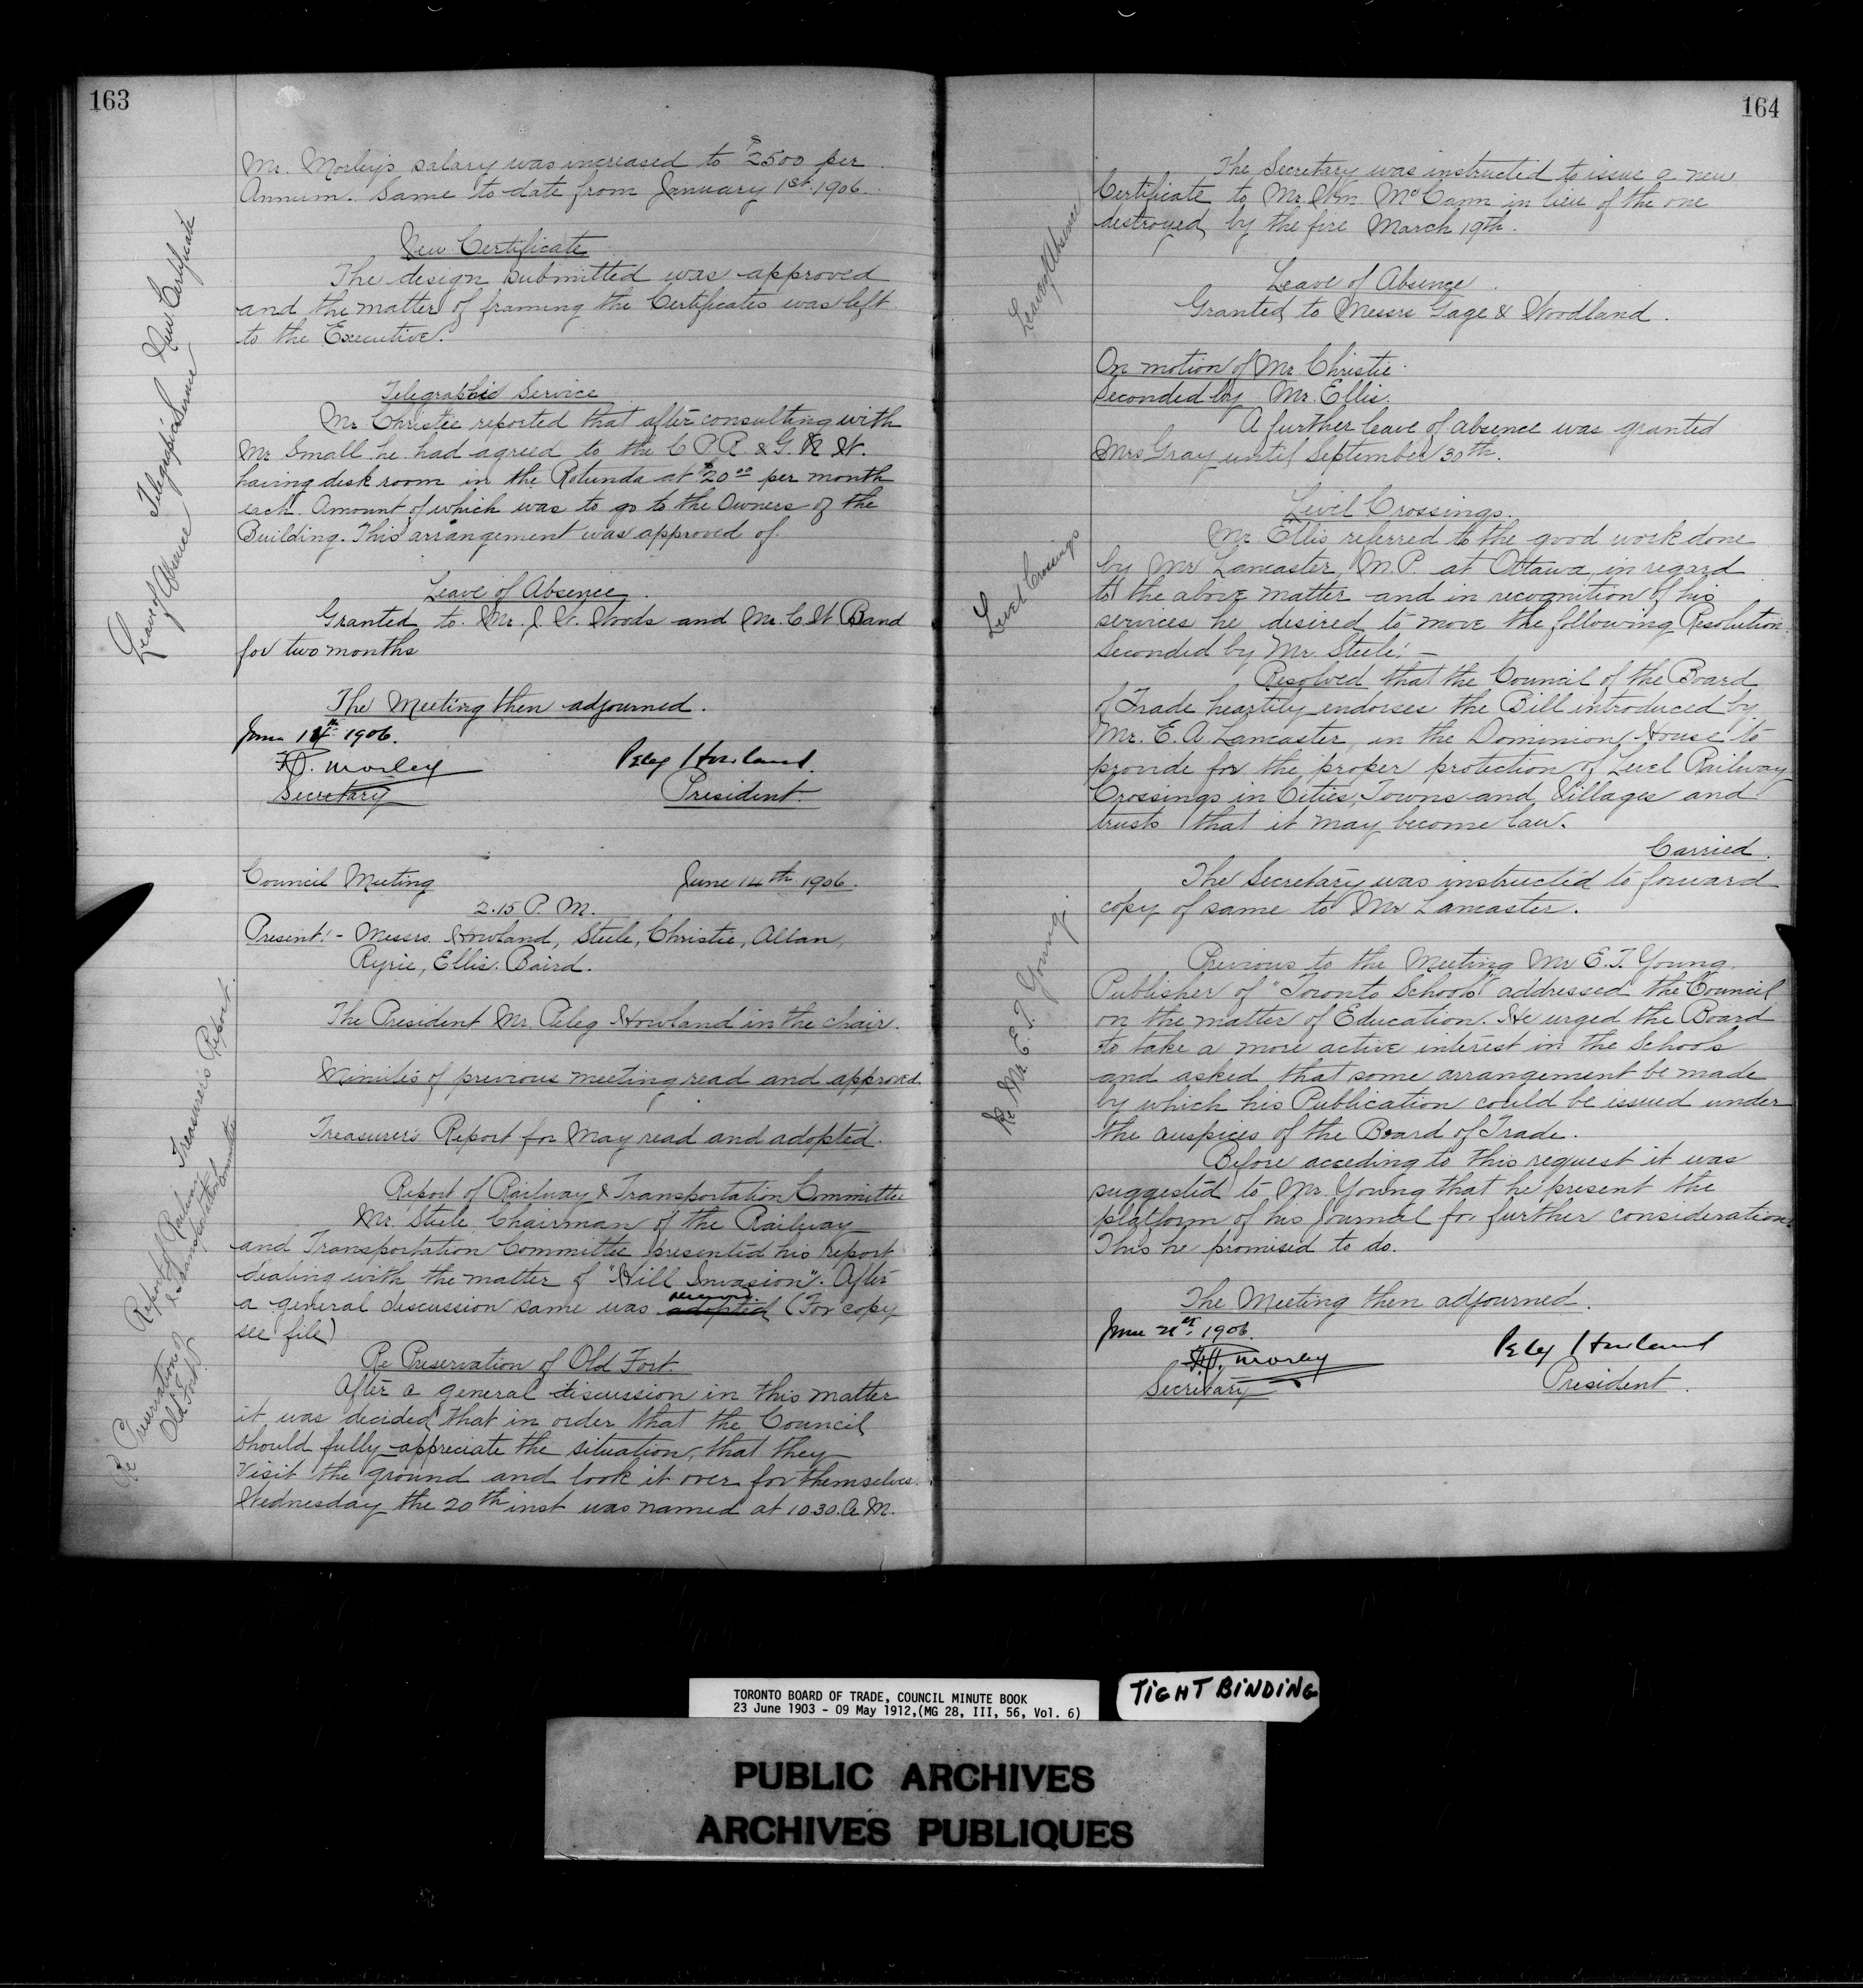 163
Mr. Morley's salary was increased to $2500 per
Annum. Same to date from January 1st 1906.
New Certificate
New Certificate
The design submitted was approved
and the matter of framing the Certificates was left
to the Executive.
Telegraphic Service
Telegraphic Service
Mr. Christie reported that after consulting with
Mr Small he had agreed to the C.P.R. & G.N.W.
having desk room in the Rotunda at $20.00 per month
each. Amount of which was to go to the Owners of the
Building. This arrangement was approved of.
Leave of Absence
Leave of Absence.
Granted to Mr. J. W. Woods and Mr. C. W. Band
for two months
The Meeting then adjourned.
June 14th 1906.
F.G. Morley
Secretary
Peleg Howland
President.
Council Meeting June 14th 1906.
2.15 P. M.
Present:- Messrs. Howland, Steele, Christie, Allan,
Ryrie, Ellis. Baird.
The President Mr. Peleg Howland in the chair.
Minutes of previous meeting read and approved.
Treasurer's Report
Treasurer's Report for May read and adopted.
Report of Railway & Transportation Committee
Report of Railway & Transportation Committee
Mr. Steele Chairman of the Railway
and Transportation Committee presented his report
dealing with the matter of "Hill Invasion". After
a general discussion same was adopted received (For copy
see file)
Re Preservation of Old Fort.
Re Preservation of Old Fort.
After a general discussion in this matter
it was decided that in order that the Council
should fully appreciate the situation, that they
visit the ground and look it over for themselves.
Wednesday the 20th inst was named at 10.30. A.M.
164
The Secretary was instructed to issue a new
Certificate to Mr. Wm. McCann in lieu of the one
destroyed by the fire March 19th.
Leave of Absence
Leave of Absence.
Granted to Messrs Gage & Woodland.
On motion of Mr Christie.
Seconded by Mr. Ellis.
A further leave of absence was granted
Mrs Gray until September 30th.
Level Crossings
Level Crossings.
Mr. Ellis referred to the good work done
by Mr Lancaster, M.P. at Ottawa, in regard
to the above matter and in recognition of his
services he desired to move the following Resolution.
Seconded by Mr. Steele:-
Resolved that the Council of the Board
of Trade heartily endorses the Bill introduced by
Mr. E. A. Lancaster, in the Dominion House to
provide for the proper protection of Level Railway
Crossings in Cities, Towns and Villages and
trusts that it may become law.
Carried.
The Secretary was instructed to forward
copy of same to Mr Lancaster.
Re Mr. E. T. Young.
Previous to the Meeting Mr E. T. Young.
Publisher of "Toronto Schools" addressed the Council
on the matter of Education. He urged the Board
to take a more active interest in the Schools
and asked that some arrangement be made
by which his Publication could be issued under
the auspices of the Board of Trade.
Before acceding to this request it was
suggested to Mr. Young that he present the
platform of his Journal for further consideration.
This he promised to do.
The Meeting then adjourned.
June 21st 1906.
F.G. Morley
Secretary
Peleg Howland
President.
TORONTO BOARD OF TRADE, COUNCIL MINUTE BOOK
23 June 1903 - 09 May 1912,(MG 28, III, 56, Vol. 6)
TIGHT BINDING
PUBLIC ARCHIVES
ARCHIVES PUBLIQUES